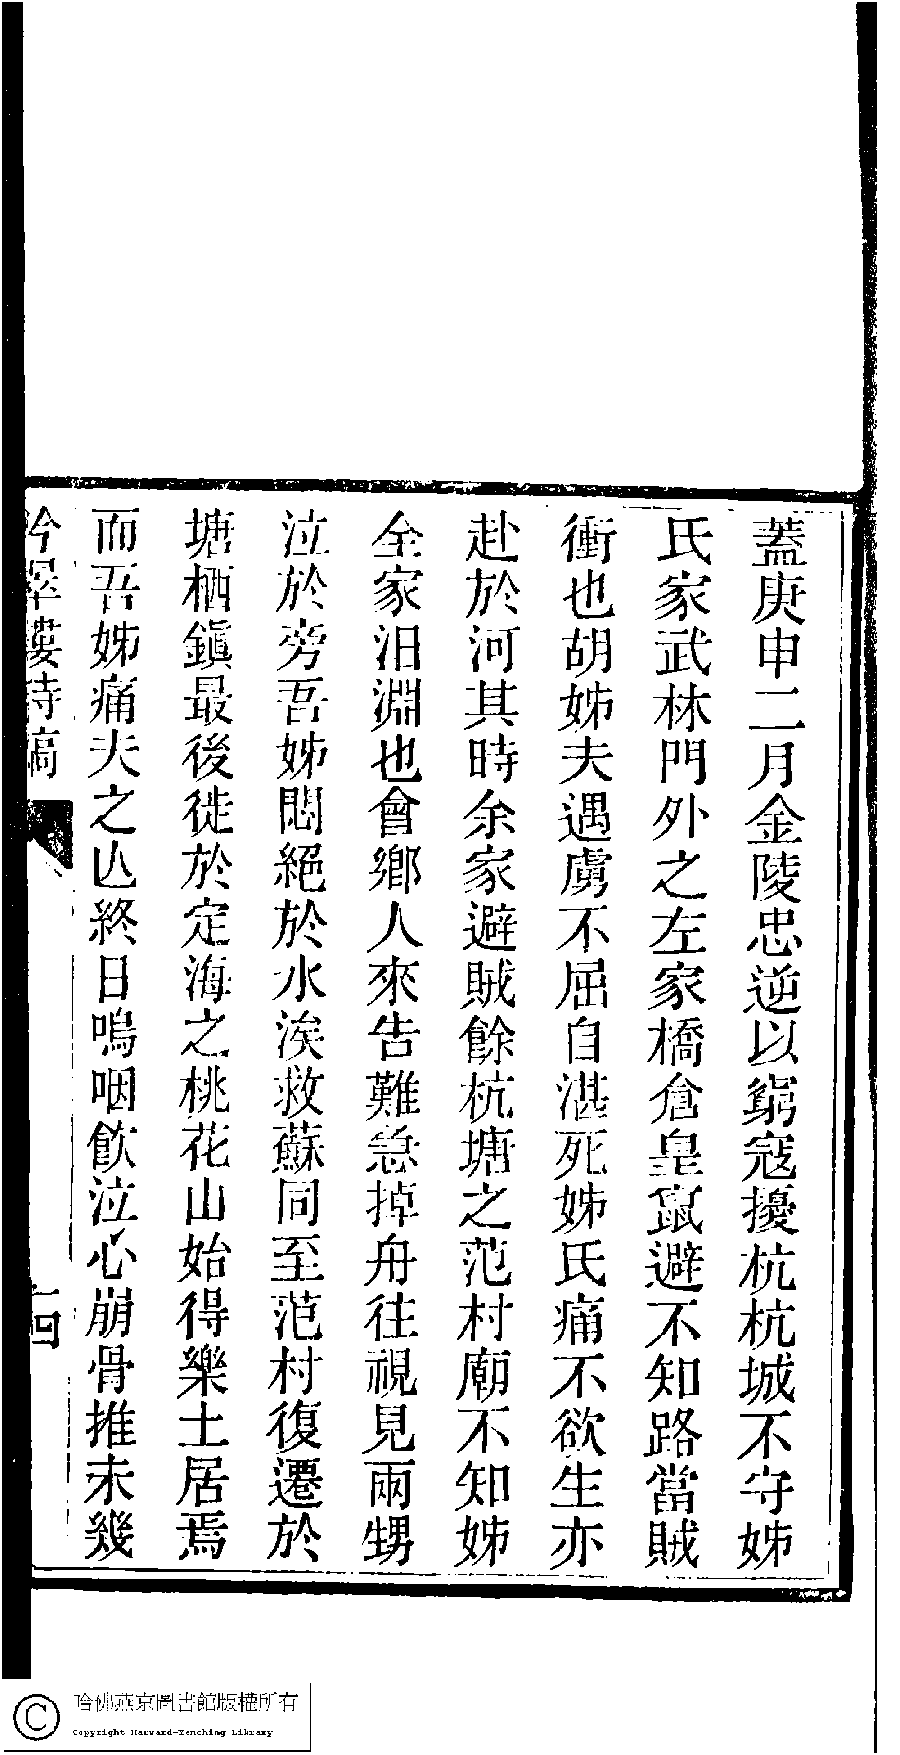 蓋庚申二月金陵忠逆以窮寇擾杭杭城不守姊
氏家武林門外之左家橋倉皇竄避不知路當賊
衝也胡姊夫遇虜不屈自湛死姊氏痛不欲生亦
赴於河其時余家避賊餘杭塘之范村廟不知姊
全家汨淵也會鄉人來告難急掉舟往視見兩甥
泣於旁吾姊悶絕於水涘救蘇同至范村復遷於
塘栖鎭最後徙於定海之桃花山始得樂土居焉
而吾姊痛夫之亾終日嗚咽飮泣心崩骨摧未幾
吟翠樓詩稿
十四
哈佛燕京圖書館版權所有
Copyright Harvard-Yenching Library